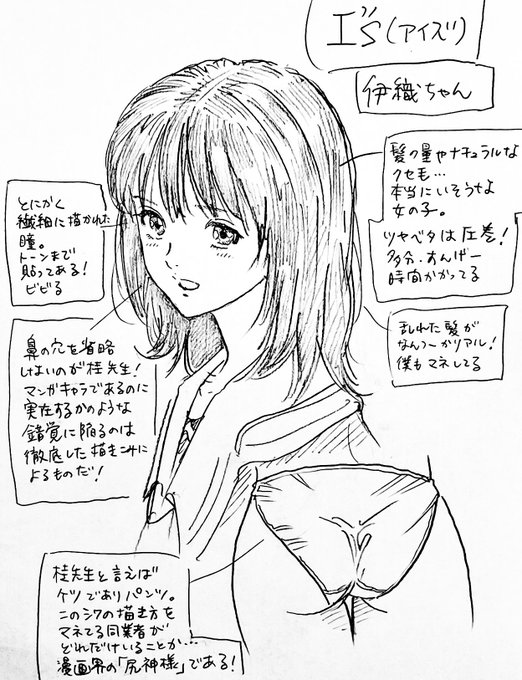 I"s(アイズ)
伊織ちゃん
髪の量やナチュラルな
クセも…
本当にいそうな
女の子。
ツヤベタは圧巻!
多分、すんげー
時間かかってる
とにかく
繊細に描かれた
瞳。
トーンまで
貼ってある!
ビビる
乱れた髪が
なんつーかリアル!
僕もマネしてる
鼻の穴を省略
しないのが桂先生!
マンガキャラであるのに
実在するかのような
錯覚に陥るのは
徹底した描きこみに
よるものだ!
桂先生と言えば
ケツでありパンツ。
このシワの描き方を
マネてる同業者が
どれだけいることか…
漫画界の「尻神様」である!